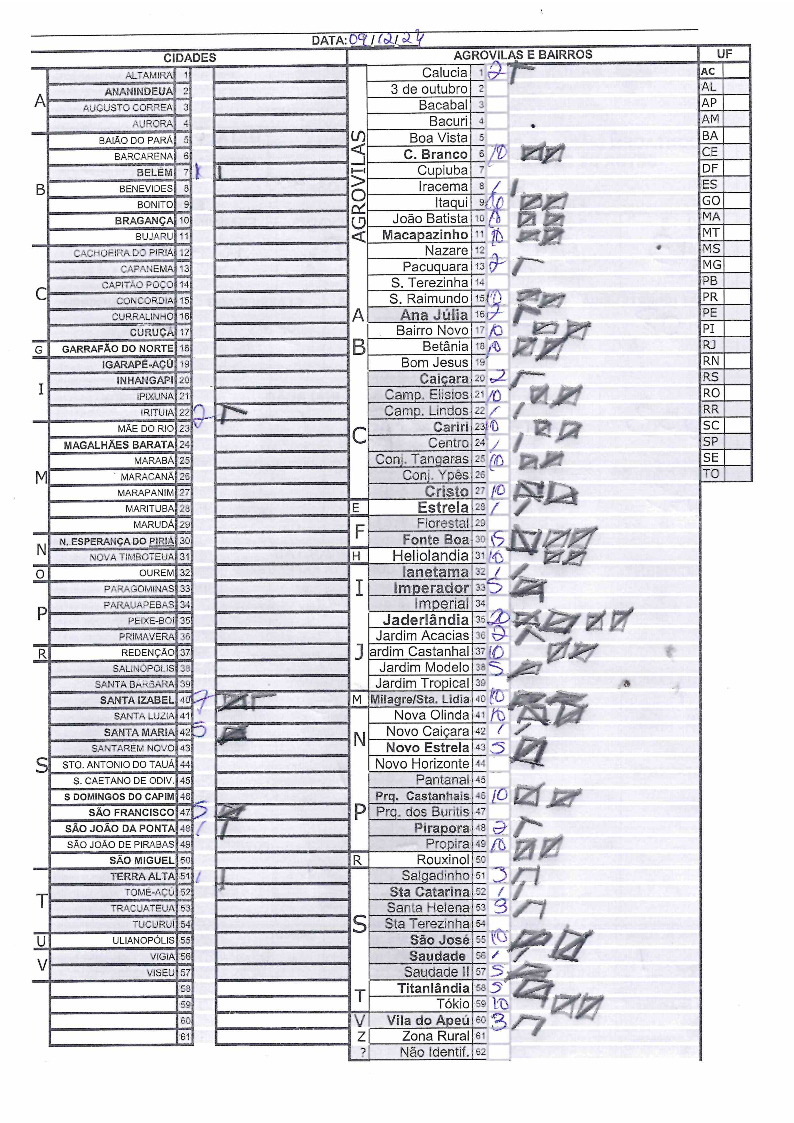 DATA: 09/12/24
CIDADES
A
ALTAMIRA 1
ANANINDEUA 2
AUGUSTO CORREA 3
AURORA 4
B
BAIÃO DO PARÁ 5
BARCARENA 6
BELÉM 7 1
BENEVIDES 8
BONITO 9
BRAGANÇA 10
BUJARU 11
C
CACHOEIRA DO PIRIA 12
CAPANEMA 13
CAPITÃO POÇO 14
CONCORDIA 15
CURRALINHO 16
CURUÇA 17
G GARRAFÃO DO NORTE 18
I
IGARAPÉ-AÇÚ 19
INHANGAPI 20
IPIXUNA 21
IRITUIA 22 2
M
MÃE DO RIO 23
MAGALHÃES BARATA 24
MARABÁ 25
MARACANÃ 26
MARAPANIM 27
MARITUBA 28
MARUDÁ 29
N
N. ESPERANÇA DO PIRIÁ 30
NOVA TIMBOTEUA 31
O OUREM 32
P
PARAGOMINAS 33
PARAUAPEBAS 34
PEIXE-BOI 35
PRIMAVERA 36
R REDENÇÃO 37
S
SALINÓPOLIS 38
SANTA BARBARA 39
SANTA IZABEL 40 7
SANTA LUZIA 41
SANTA MARIA 42 5
SANTAREM NOVO 43
STO. ANTONIO DO TAUÁ 44
S. CAETANO DE ODIV. 45
S DOMINGOS DO CAPIM 46
SÃO FRANCISCO 47 5
SÃO JOÃO DA PONTA 48 1
SÃO JOÃO DE PIRABAS 49
SÃO MIGUEL 50
T
TERRA ALTA 51 1
TOME-AÇÚ 52
TRACUATEUA 53
TUCURUI 54
U ULIANOPÓLIS 55
V
VIGIA 56
VISEU 57
58
59
60
61
AGROVILAS E BAIRROS
AGROVILAS
Calucia 1 2
3 de outubro 2
Bacabal 3
Bacuri 4
Boa Vista 5
C. Branco 6 10
Cupiuba 7
Iracema 8 1
Itaqui 9 10
João Batista 10 10
Macapazinho 11 10
Nazare 12
Pacuquara 13 2
S. Terezinha 14
S. Raimundo 15 10
A Ana Júlia 16 2
B
Bairro Novo 17 10
Betânia 18 10
Bom Jesus 19
C
Caiçara 20 2
Camp. Elisios 21 10
Camp. Lindos 22 1
Cariri 23 10
Centro 24 1
Conj. Tangaras 25 10
Conj. Ypês 26
Cristo 27 10
E Estrela 28 1
F
Florestal 29
Fonte Boa 30 15
H Heliolandia 31 10
I
Ianetama 32 1
Imperador 33 5
Imperial 34
J
Jaderlândia 35 20
Jardim Acacias 36 2
ardim Castanhal 37 10
Jardim Modelo 38 5
Jardim Tropical 39
M Milagre/Sta. Lidia 40 10
N
Nova Olinda 41 10
Novo Caiçara 42 1
Novo Estrela 43 5
Novo Horizonte 44
P
Pantanal 45
Prq. Castanhais 46 10
Prq. dos Buritis 47
Pirapora 48 2
Propira 49 10
R Rouxinol 50
S
Salgadinho 51 3
Sta Catarina 52 1
Santa Helena 53 3
Sta Terezinha 54
São José 55 10
Saudade 56 1
Saudade II 57 5
T
Titanlândia 58 5
Tókio 59 10
V Vila do Apeú 60 3
Z Zona Rural 61
? Não Identif. 62
UF
AC
AL
AP
AM
BA
CE
DF
ES
GO
MA
MT
MS
MG
PB
PR
PE
PI
RJ
RN
RS
RO
RR
SC
SP
SE
TO